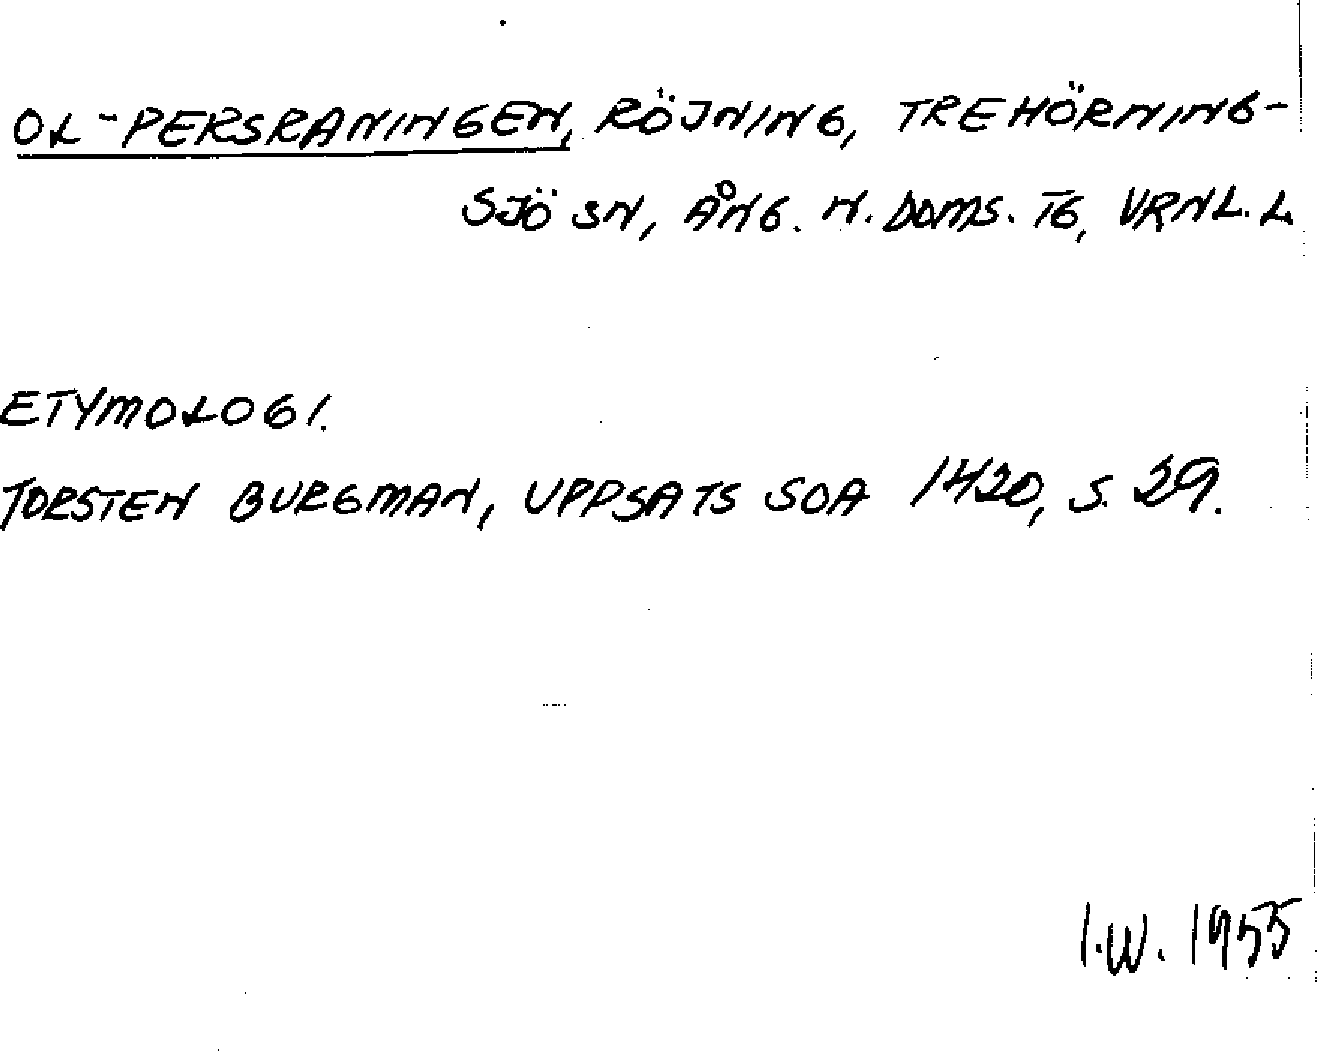 OL-PERSRANINGEN, RÖJNING, TREHÖRNING-
SJÖ SN, ÅNG. N. DOMS. TG, VRNL. L
ETYMOLOGI.
TORSTEN BURGMAN, UPPSATS SOA 1420, S. 29.
I.W. 1955